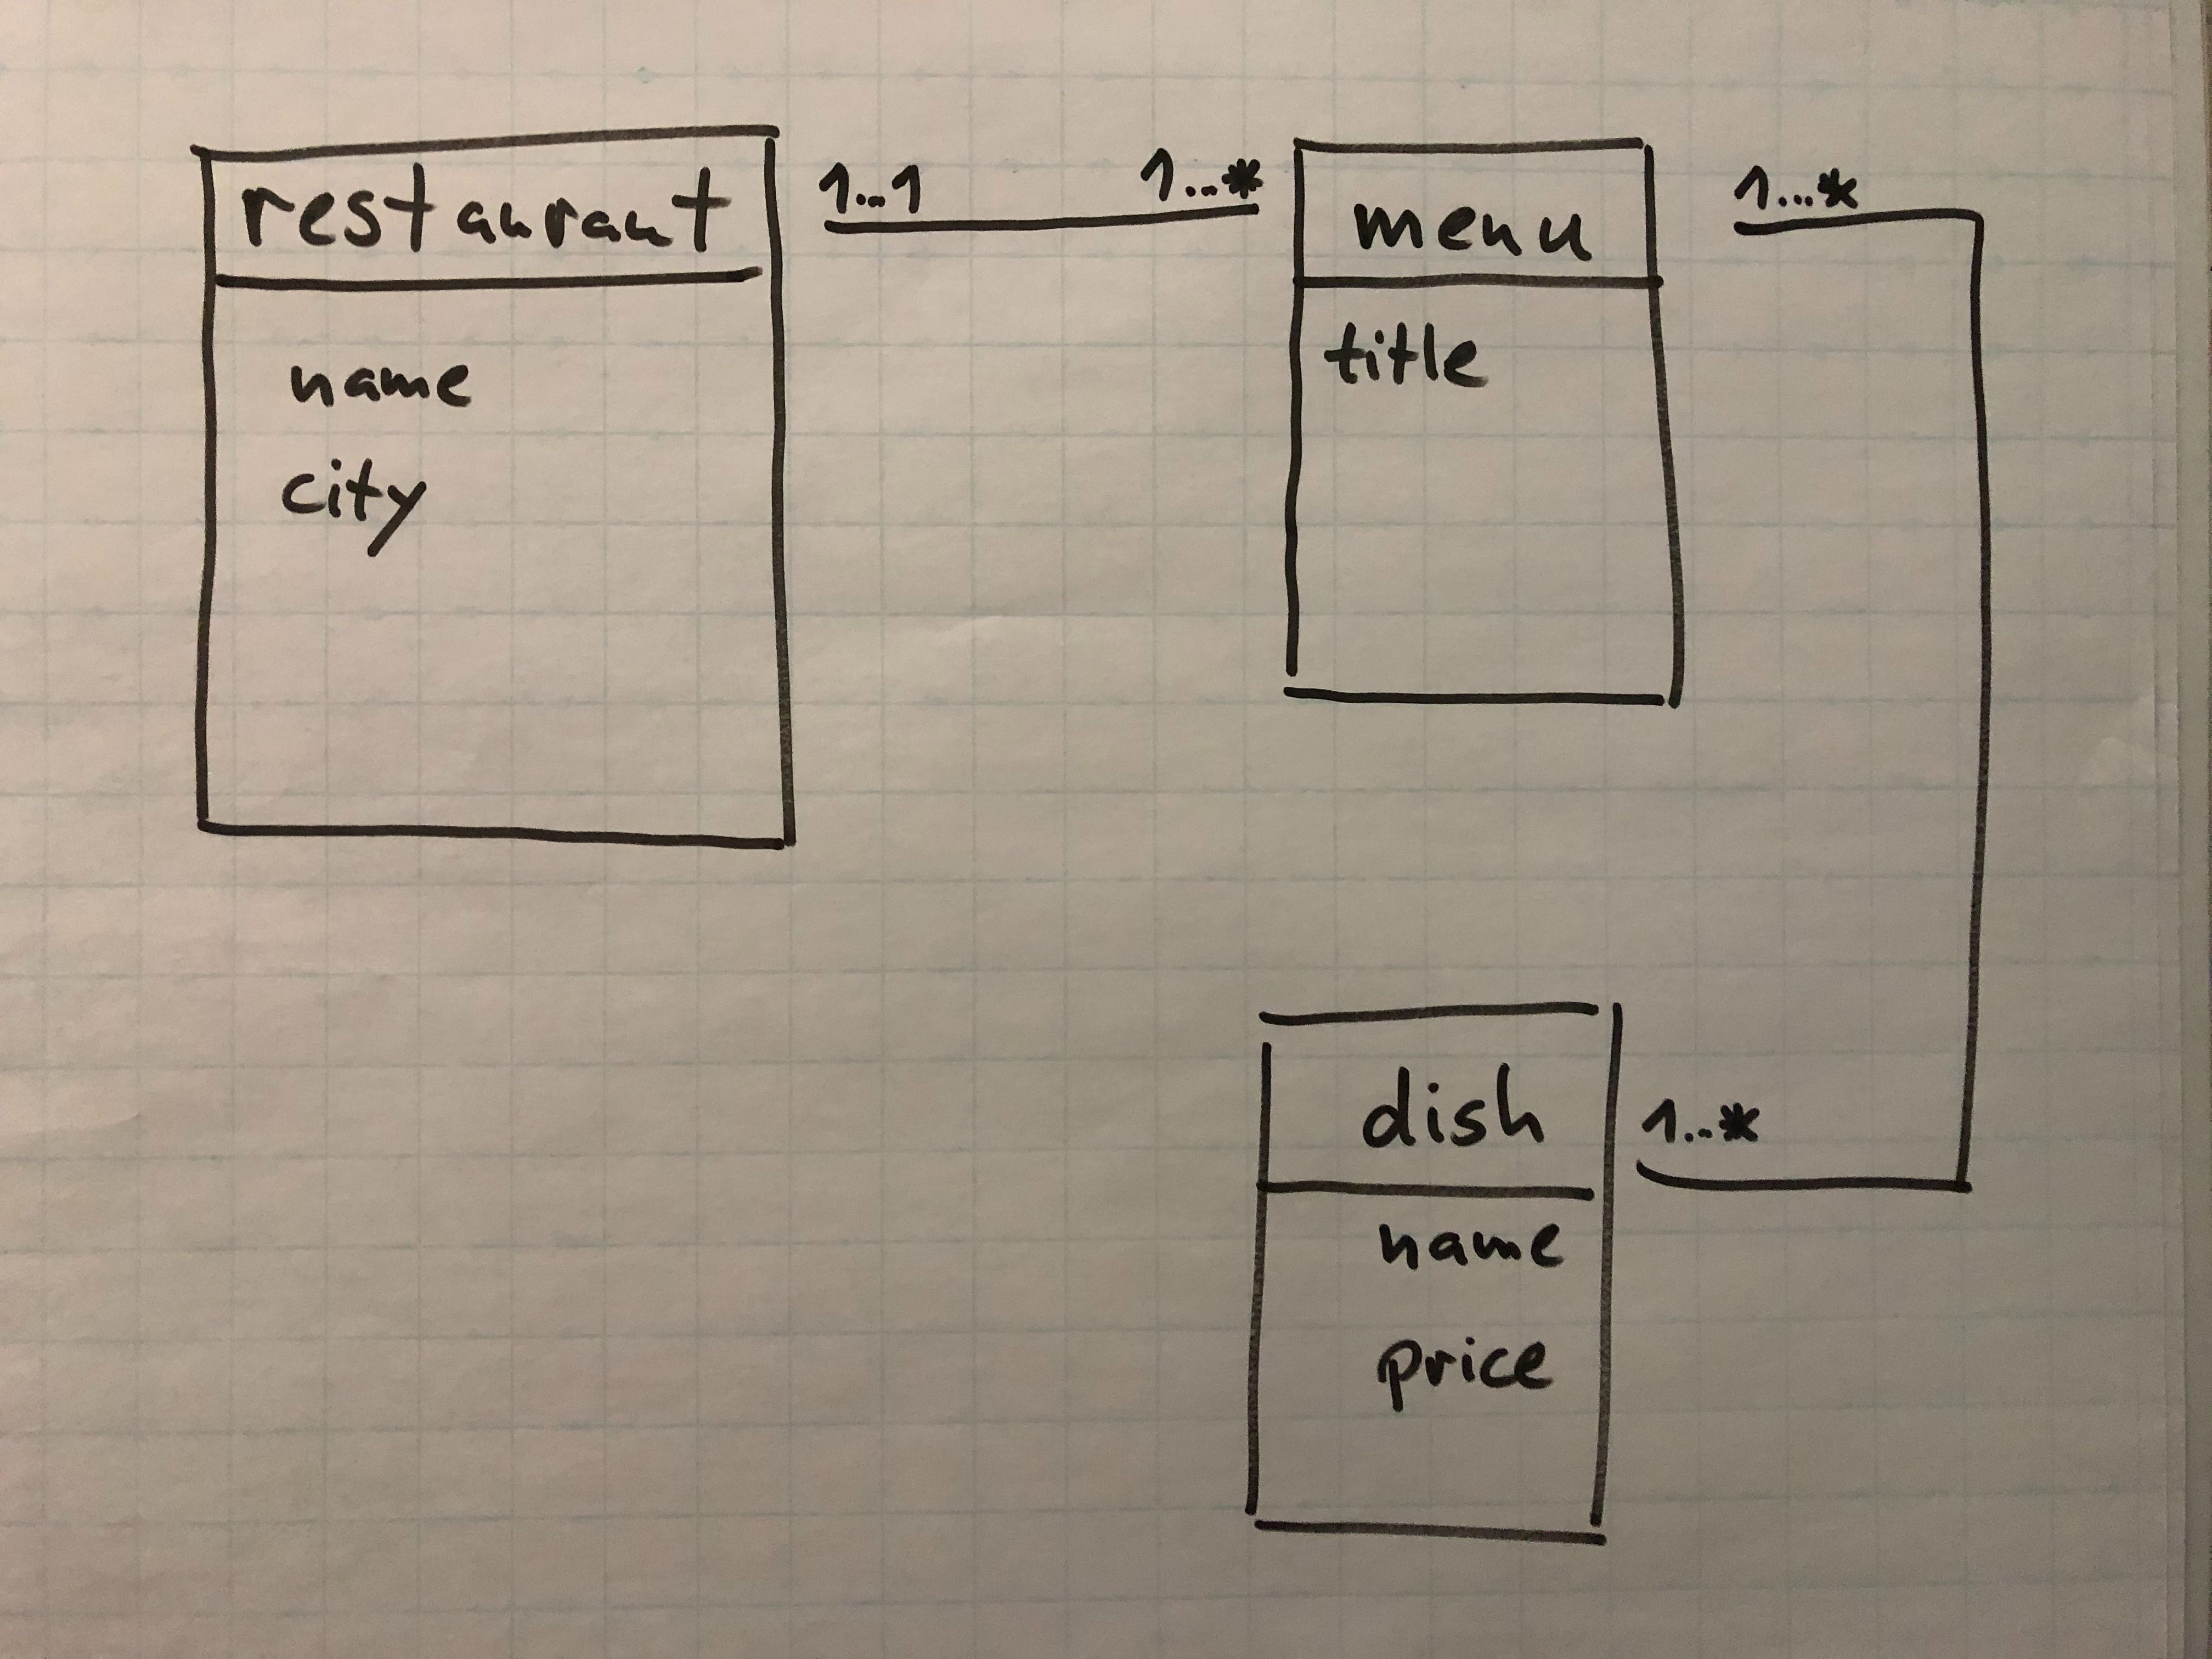 restaurant
name
city
1..1
1...*
menu
title
1...*
dish
name
price
1..*